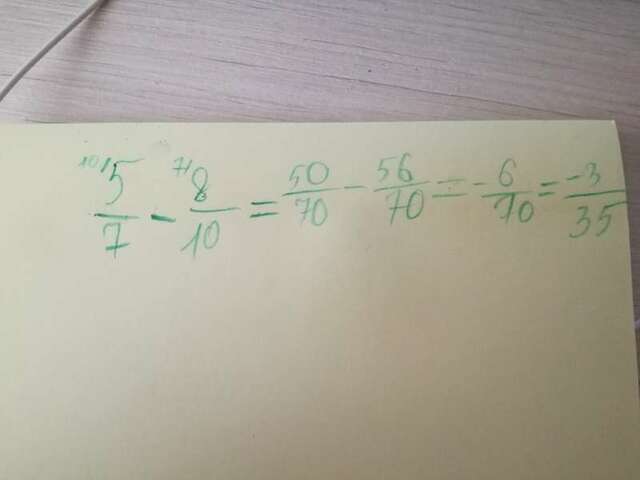 10) 5/7 - 7) 8/10 = 50/70 - 56/70 = - 6/70 = -3/35